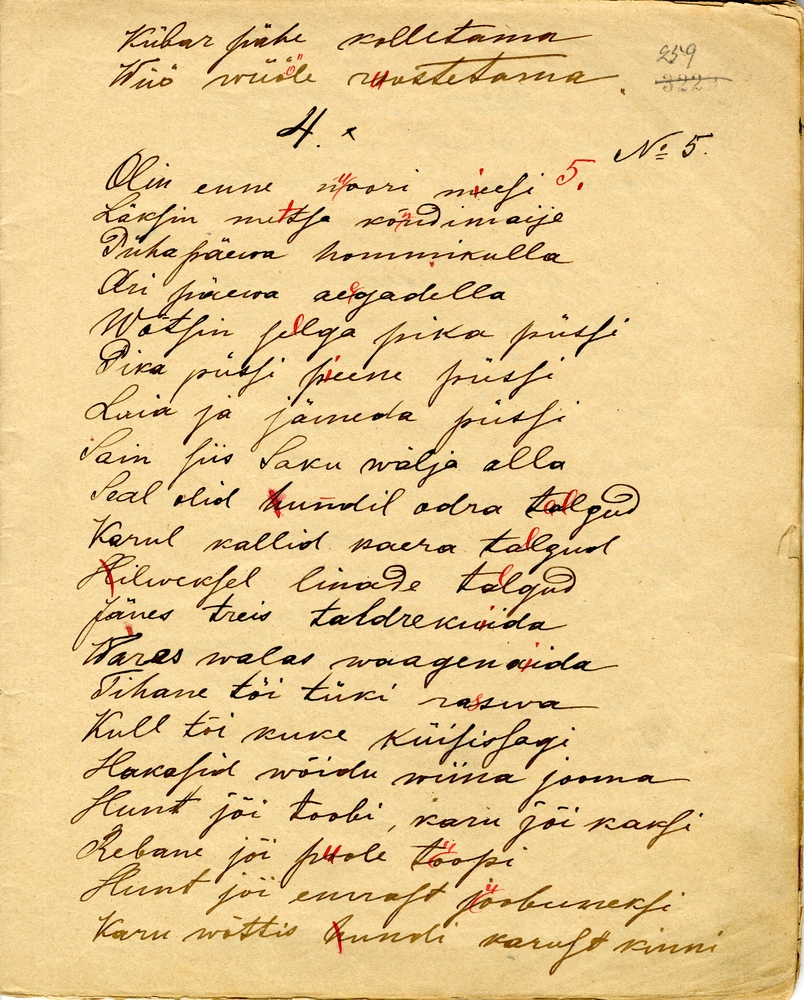 Kübar pähe kolletama
Wüö wüöle ruostetama.
259
3223
4. ×
No 5.
Olin enne nuori miesi 5.
Läksin metsa kõndimaije
Pühapäewa hommikulla
Äri päewa aegadella
Wõtsin selga pika püssi
Pika püssi piene püssi
Laia ja jämeda püssi
Sain siis Saku wälja alla
Seal olid hundil odra talgud
Karul kallid kaera talgud
Hilweksel linade talgud
Jänes treis taldrekuida
Wares walas waagenaida
Tihane tõi tüki raswa
Kull tõi kuke küisissagi
Hakasid wõidu wiina jooma
Hunt jõi toobi, karu jõi kaksi
Rebane jõi puole toopi
Hunt jõi ennast joobumeksi
Karu wõttis hundi karust kinni